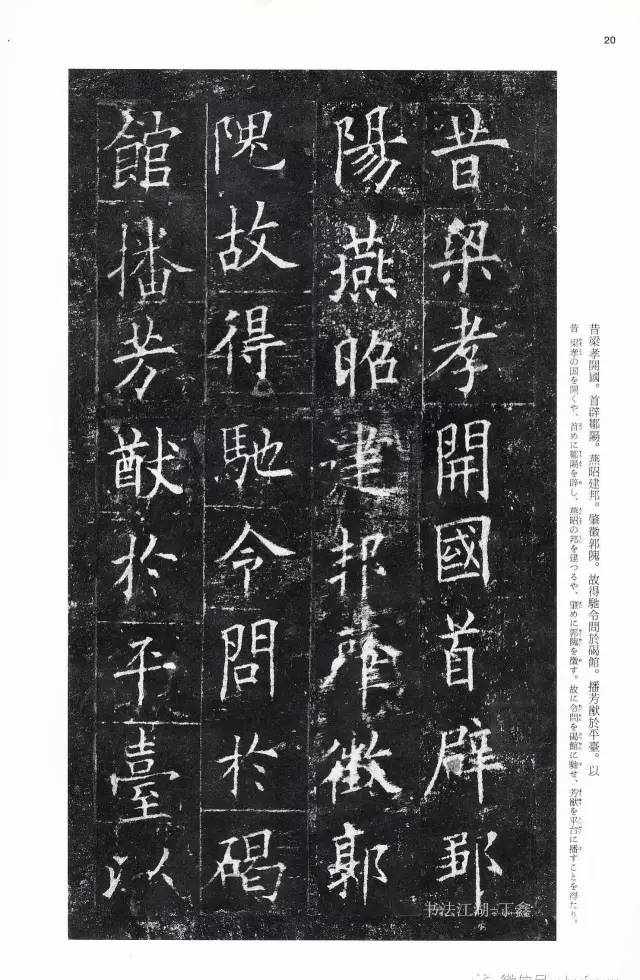 20
昔梁孝開國首辟鄒
陽燕昭建邦肇徵郭
隗故得馳令問於碣
館播芳猷於平臺以
昔梁孝開國。首辟鄒陽。燕昭建邦。肇徵郭隗。故得馳令問於碣館。播芳猷於平臺。以
昔梁孝の国を開くや、首めに鄒陽を辟し、燕昭の邦を建つるや、肇めに郭隗を徵す。故に令問を碣館に馳せ、芳猷を平台に播すことを得たり。
书法江湖 丁鑫